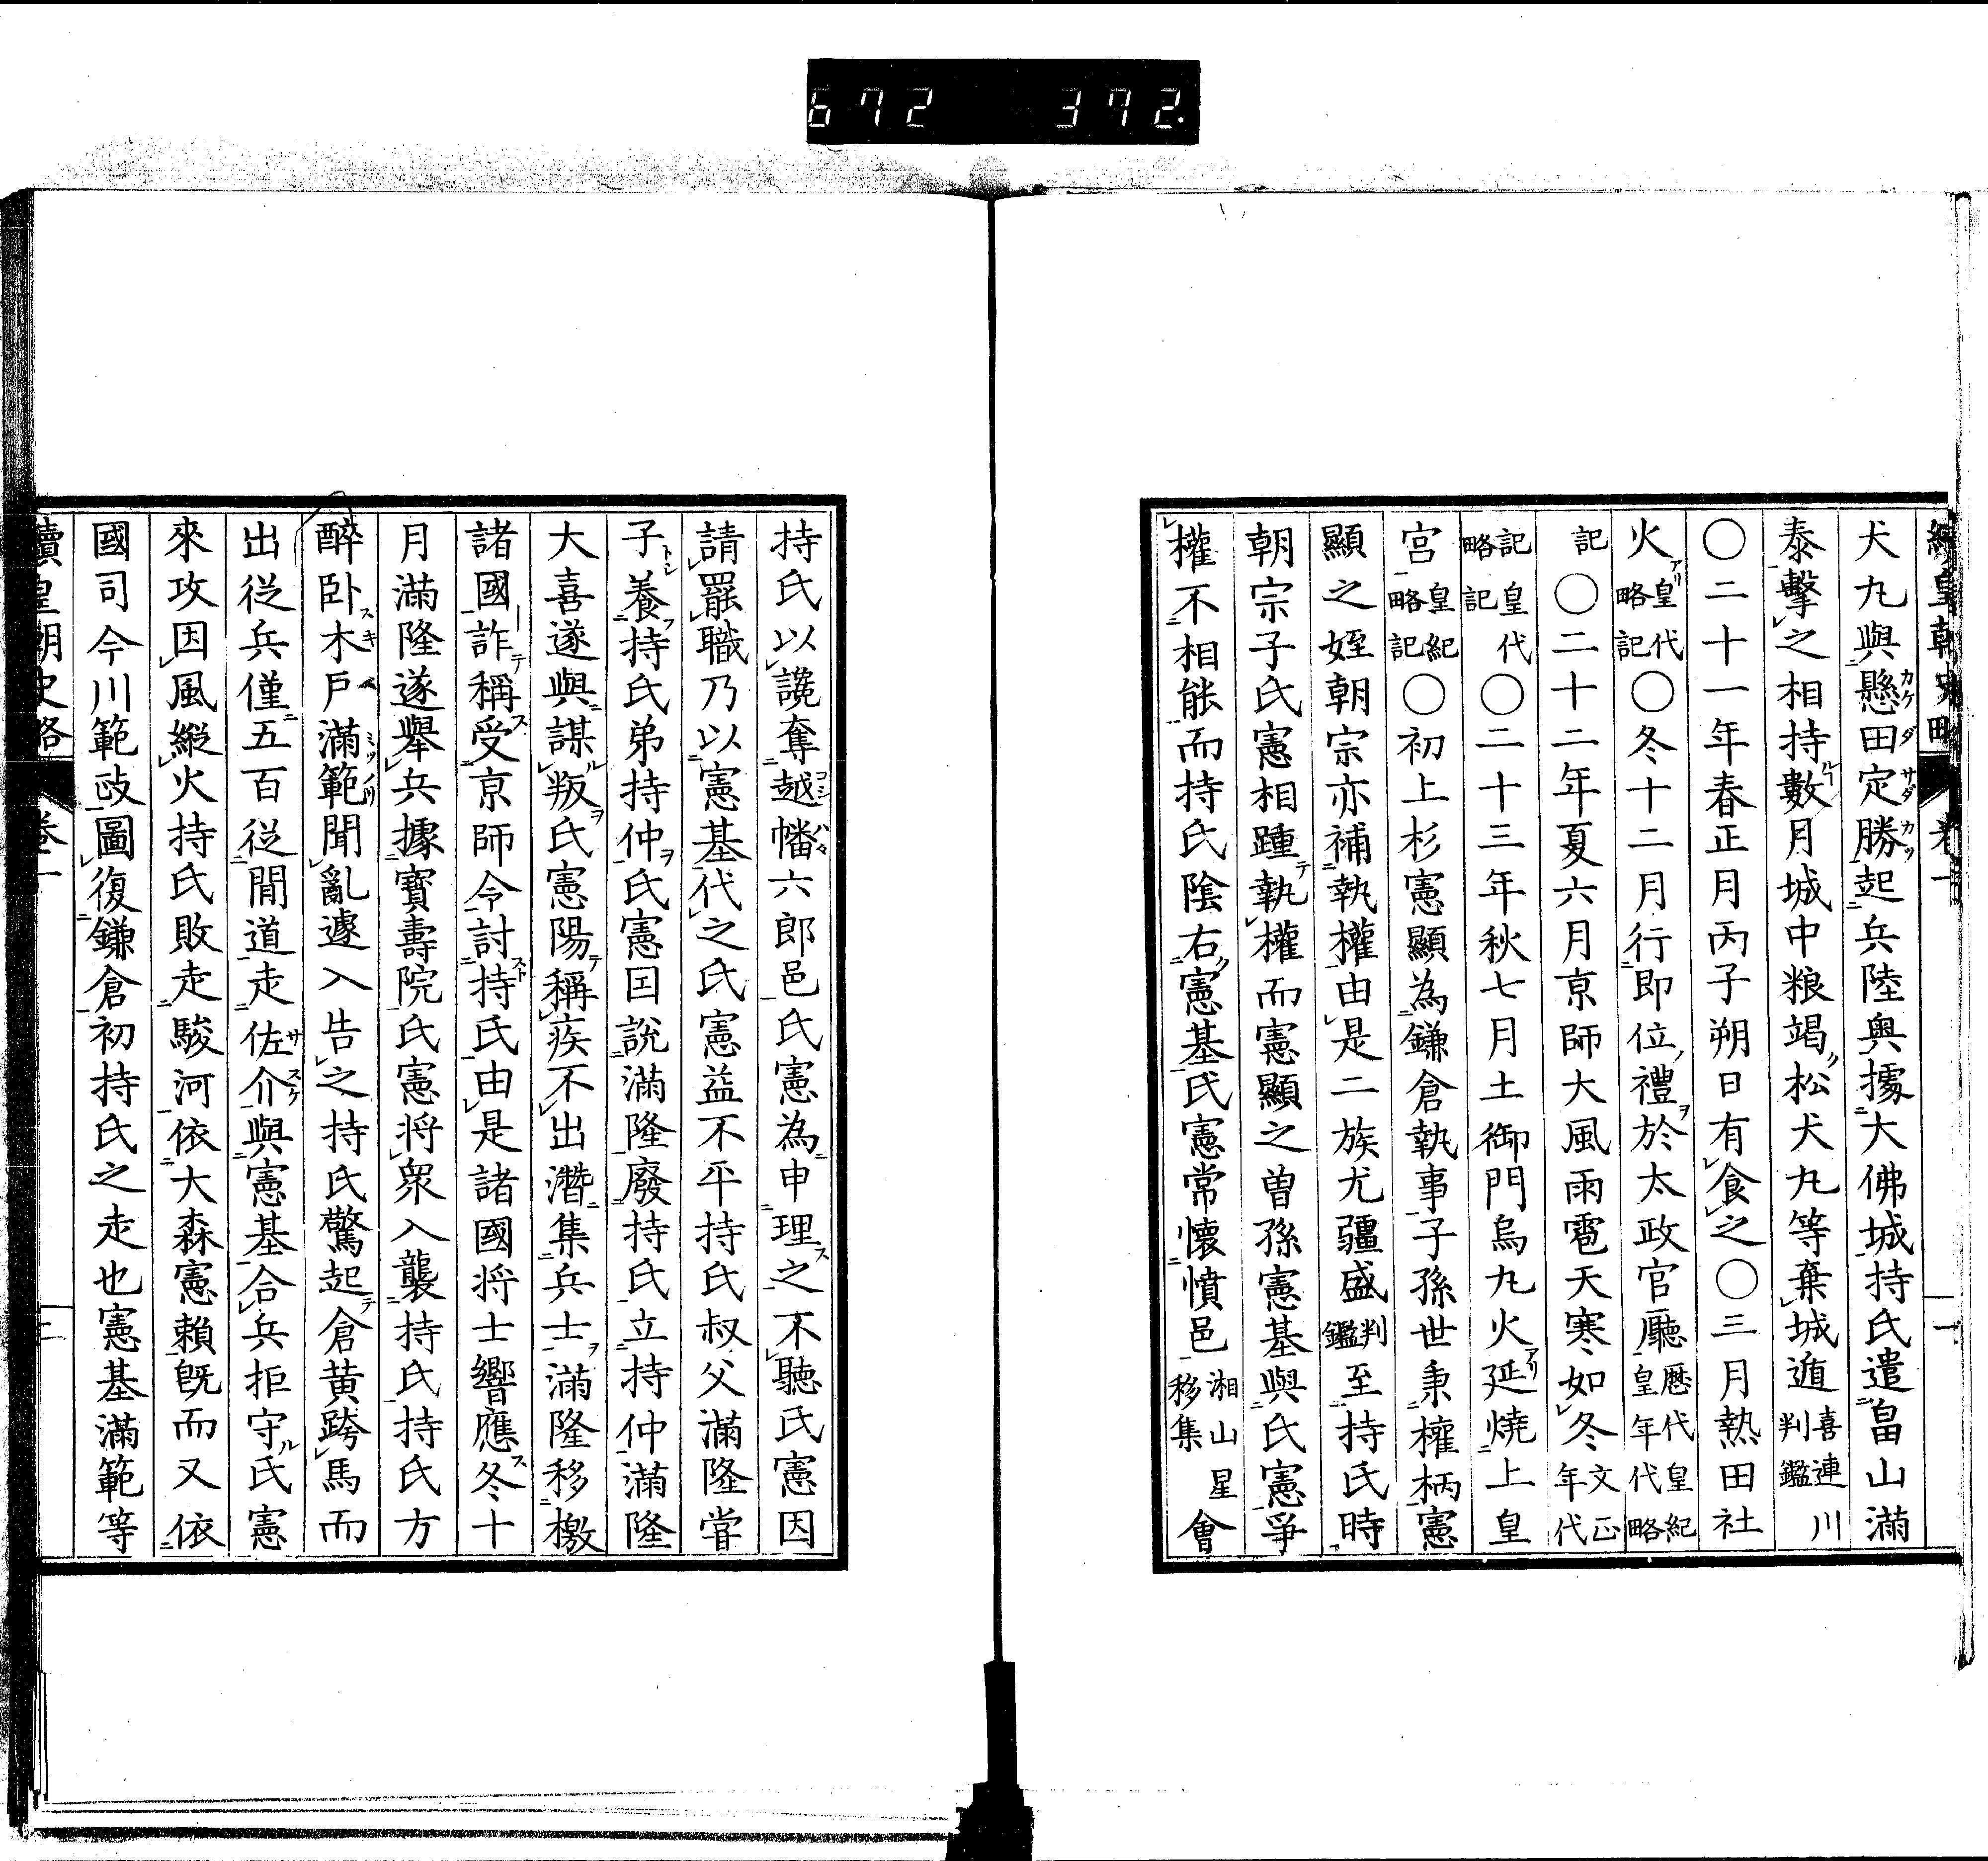 672 372.
續皇朝史略 卷一 一
犬丸與懸田定勝起兵陸奧據大佛城持氏遣畠山滿
泰擊之相持數月城中粮竭松犬丸等棄城遁喜連川判鑑
〇二十一年春正月丙子朔日有食之〇三月熱田社
火皇代略記〇冬十二月行即位禮於太政官廳歷代皇紀皇年代略
記〇二十二年夏六月京師大風雨雹天寒如冬文正年代
記皇代略記〇二十三年秋七月土御門烏丸火延燒上皇
宮皇紀略記〇初上杉憲顯為鎌倉執事子孫世秉權柄憲
顯之姪朝宗亦補執權由是二族尤疆盛判鑑至持氏時
朝宗子氏憲相踵執權而憲顯之曾孫憲基與氏憲爭
權不相能而持氏陰右憲基氏憲常懷憤邑湘山星移集會
持氏以讒奪越幡六郎邑氏憲為申理之不聽氏憲因
請罷職乃以憲基代之氏憲益不平持氏叔父滿隆嘗
子養持氏弟持仲氏憲因說滿隆廢持氏立持仲滿隆
大喜遂與謀叛氏憲陽稱疾不出潛集兵士滿隆移檄
諸國詐稱受京師令討持氏由是諸國将士響應冬十
月滿隆遂舉兵據寶壽院氏憲将衆入襲持氏持氏方
醉卧木戶滿範聞亂遽入告之持氏驚起倉黄跨馬而
出從兵僅五百從間道走佐介與憲基合兵拒守氏憲
來攻因風縱火持氏敗走駿河依大森憲賴旣而又依
國司今川範政圖復鎌倉初持氏之走也憲基滿範等
續皇朝史略 卷一 二